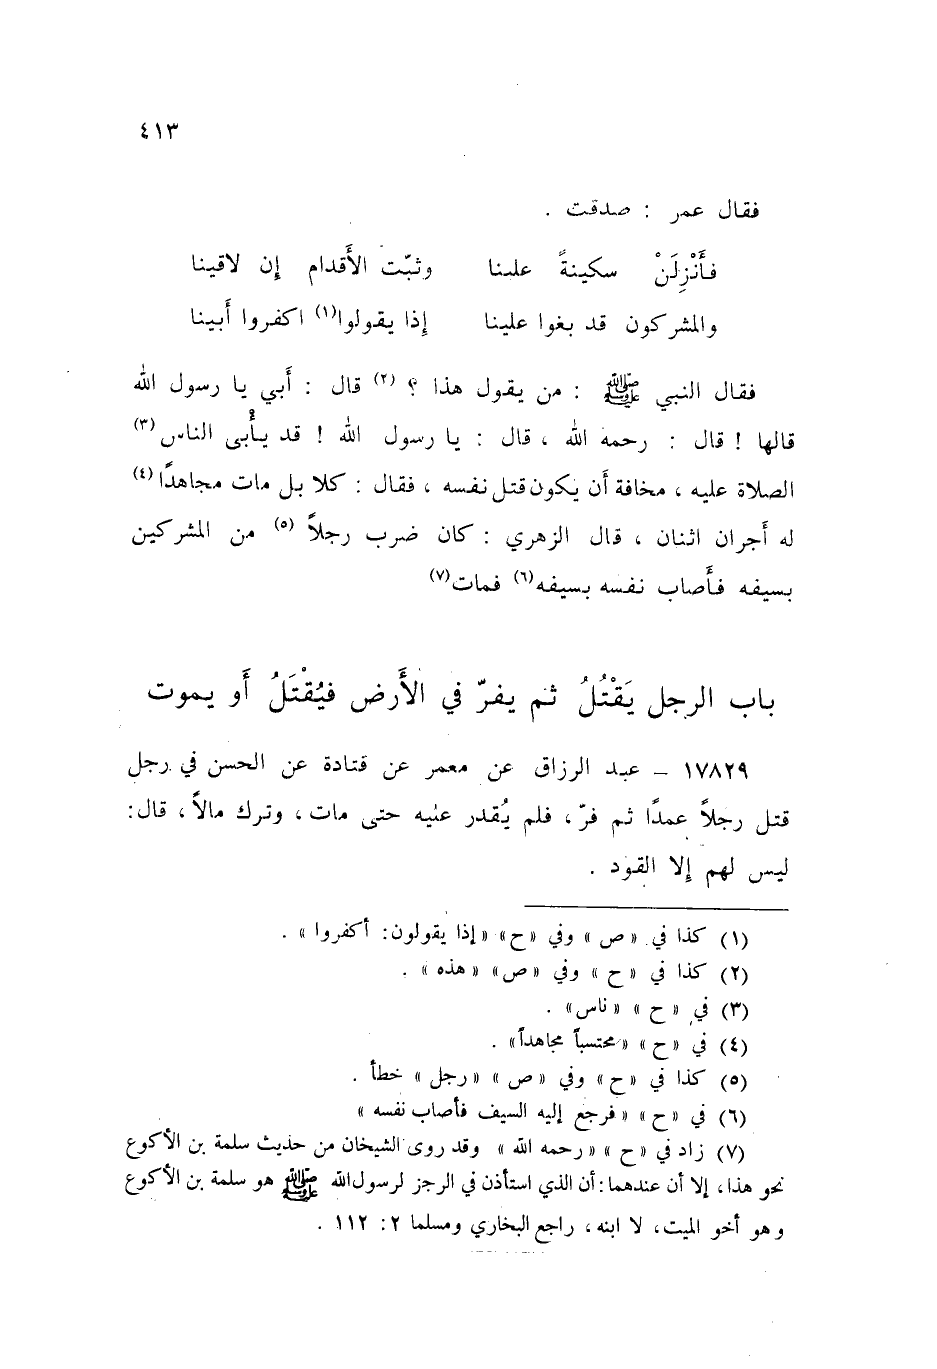 ٤١٣
فقال عمر : صدقت .
فأَنْزِلَنْ سكينةً علينا وثبّت الأَقدام إن لاقينا
والمشركون قد بغوا علينا إذا يقولوا(١) اكفروا أَبينا
فقال النبي ﷺ : من يقول هذا ؟ (٢) قال : أَبي يا رسول الله
قالها ! قال : رحمه الله ، قال : يا رسول الله ! قد يأْبى الناس(٣)
الصلاة عليه ، مخافة أن يكون قتل نفسه ، فقال : كلا بل مات مجاهدًا(٤)
له أجران اثنان ، قال الزهري : كان ضرب رجلاً (٥) من المشركين
بسيفه فأَصاب نفسه بسيفه(٦) فمات(٧)
باب الرجل يَقْتُلُ ثم يفرّ في الأَرض فيُقْتَلُ أَو يموت
١٧٨٢٩ – عبد الرزاق عن معمر عن قتادة عن الحسن في رجل
قتل رجلاً عمدًا ثم فرّ ، فلم يُقدر عليه حتى مات ، وترك مالاً ، قال :
ليس لهم إلا القود .
(١) كذا في « ص » وفي « ح » « إذا يقولون : أكفروا » .
(٢) كذا في « ح » وفي « ص » « هذه » .
(٣) في « ح » « ناس » .
(٤) في « ح » « محتسباً مجاهداً » .
(٥) كذا في « ح » وفي « ص » « رجل » خطأ .
(٦) في « ح » « فرجع إليه السيف فأصاب نفسه »
(٧) زاد في « ح » « رحمه الله » وقد روى الشيخان من حديث سلمة بن الأكوع
نحو هذا ، إلا أن عندهما : أن الذي استأذن في الرجز لرسول الله ﷺ هو سلمة بن الأكوع
وهو أخو الميت ، لا ابنه ، راجع البخاري ومسلما ٢ : ١١٢ .